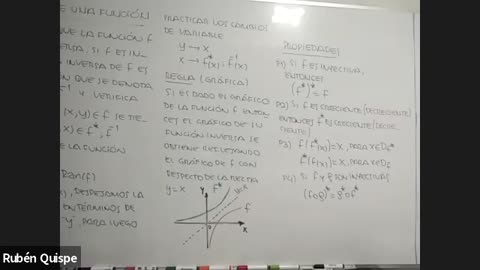 E UNA FUNCIÓN
QUE LA FUNCIÓN f
ERSA, SI f ES IN-
INVERSA DE f ES
N QUE SE DENOTA
Y VERIFICA
(x,y)∈f SE TIE-
x)∈f*, f⁻¹
E LA FUNCIÓN
Ran(f)
), DESPEJAMOS LA
EN TÉRMINOS DE
"y", PARA LUEGO
PRACTICAR LOS CAMBIOS
DE VARIABLE
y → x
x → f*(x), f⁻¹(x)
REGLA (GRÁFICA)
SI ES DADO EL GRÁFICO
DE LA FUNCIÓN f ENTON-
CES EL GRÁFICO DE SU
FUNCIÓN INVERSA SE
OBTIENE REFLEJANDO
EL GRÁFICO DE f CON
RESPECTO DE LA RECTA
y=x
Y f* y=x
f
X
PROPIEDADES
P1) SI f ES INYECTIVA,
ENTONCES
(f*)* = f
P2) SI f ES CRECIENTE (DECRECIENTE)
ENTONCES f* ES CRECIENTE (DECRE-
CIENTE)
P3) f(f*(x))=x, PARA x∈Df*
f*(f(x))=x, PARA x∈Df
P4) SI f Y g SON INYECTIVAS
(f∘g)* = g*∘f*
Rubén Quispe